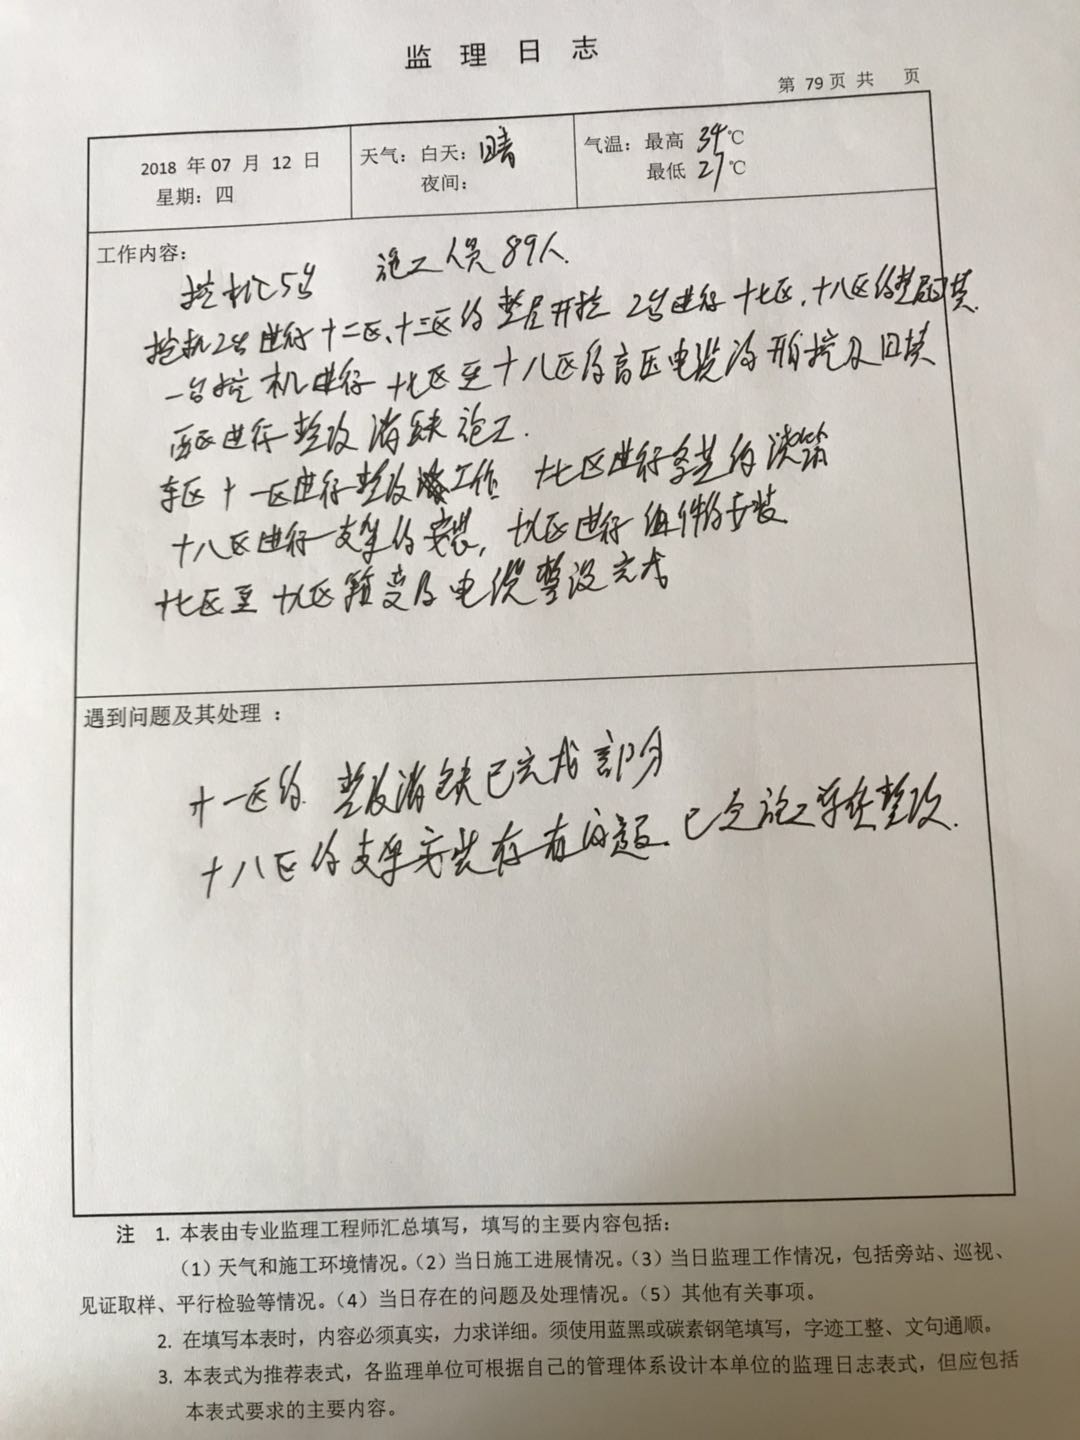 监理日志
第 79 页 共 页
2018 年 07 月 12 日
星期：四
天气：白天：晴
夜间：
气温：最高 34℃
最低 27℃
工作内容：
挖机5台 施工人员89人.
挖机2台进行十二区、十三区的基层开挖 2台进行十七区、十八区的基层回填.
一台挖机进行十七区至十八区的高压电缆沟开挖及回填
西区进行整改消缺施工.
东区十一区进行整改工作 十七区进行条基的浇筑
十八区进行支架的安装, 十九区进行组件的安装
十七区至十九区箱变及电缆敷设完成
遇到问题及其处理：
十一区的整改消缺已完成部分
十八区的支架安装存有问题. 已交施工单位整改.
注 1. 本表由专业监理工程师汇总填写，填写的主要内容包括：
（1）天气和施工环境情况。（2）当日施工进展情况。（3）当日监理工作情况，包括旁站、巡视、
见证取样、平行检验等情况。（4）当日存在的问题及处理情况。（5）其他有关事项。
2. 在填写本表时，内容必须真实，力求详细。须使用蓝黑或碳素钢笔填写，字迹工整、文句通顺。
3. 本表式为推荐表式，各监理单位可根据自己的管理体系设计本单位的监理日志表式，但应包括
本表式要求的主要内容。